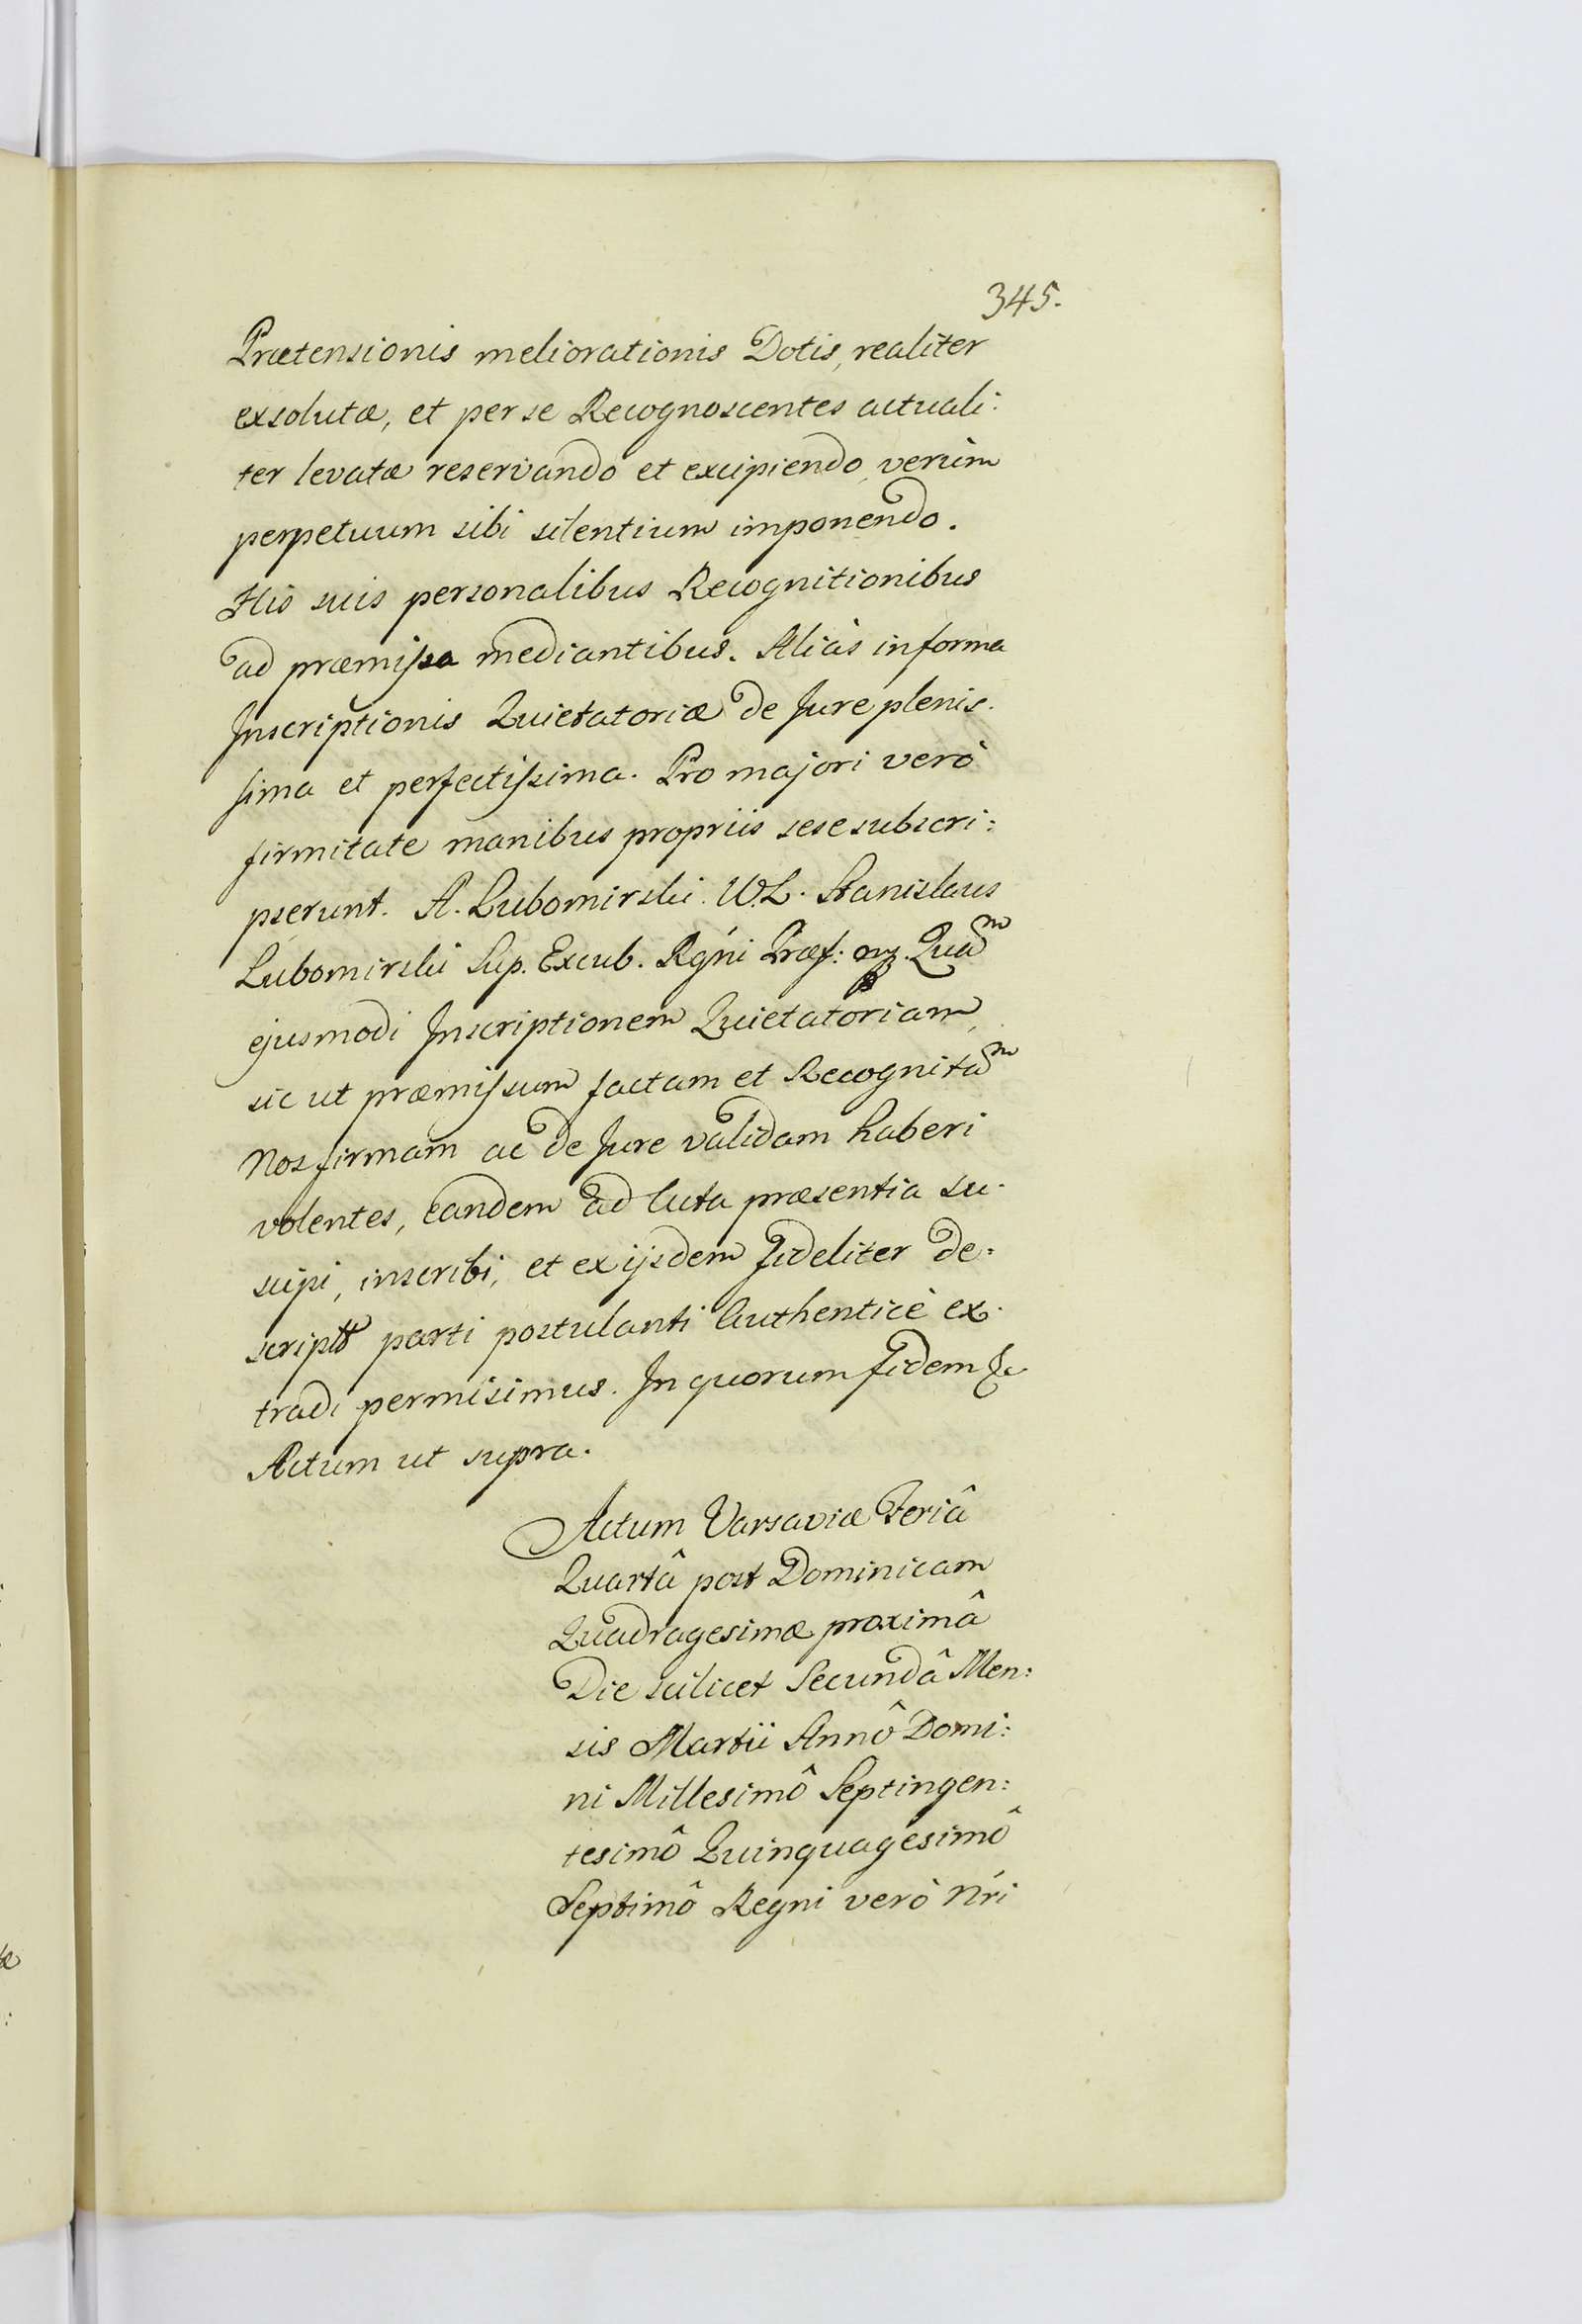 345.
Prætensionis meliorationis Dotis, realiter
exsolutæ, et per se Recognoscentes actuali:
ter levatæ reservando et excipiendo, verùm
perpetuum sibi silentium imponendo.
His suis personalibus Recognitionibus
ad præmissa mediantibus. Aliàs in forma
Inscriptionis Quietatoriæ de Jure plenis:
sima et perfectissima. Pro majori verò
firmitate manibus propriis sese subscri:
pserunt. A. Lubomirski. W.L. Stanislaus
Lubomirski Sup. Excub. Rgńi Præf: mp. Quam
ejusmodi Inscriptionem Quietatoriam,
sic ut præmissum factam et Recognitam
Nos firmam ac de Jure validam haberi
volentes, eandem ad Acta præsentia su:
scipi, inscribi, et ex ijsdem fideliter de:
scriptã parti postulanti Authenticè ex:
tradi permisimus. In quorum fidem &c
Actum ut supra.
Actum Varsaviæ Feriâ
Quartâ post Dominicam
Quadragesimæ proximâ
Die scilicet Secundâ Men:
sis Martii Annô Domi:
ni Millesimô Septingen:
tesimô Quinquagesimô
Septimô Regni verò Nŕi